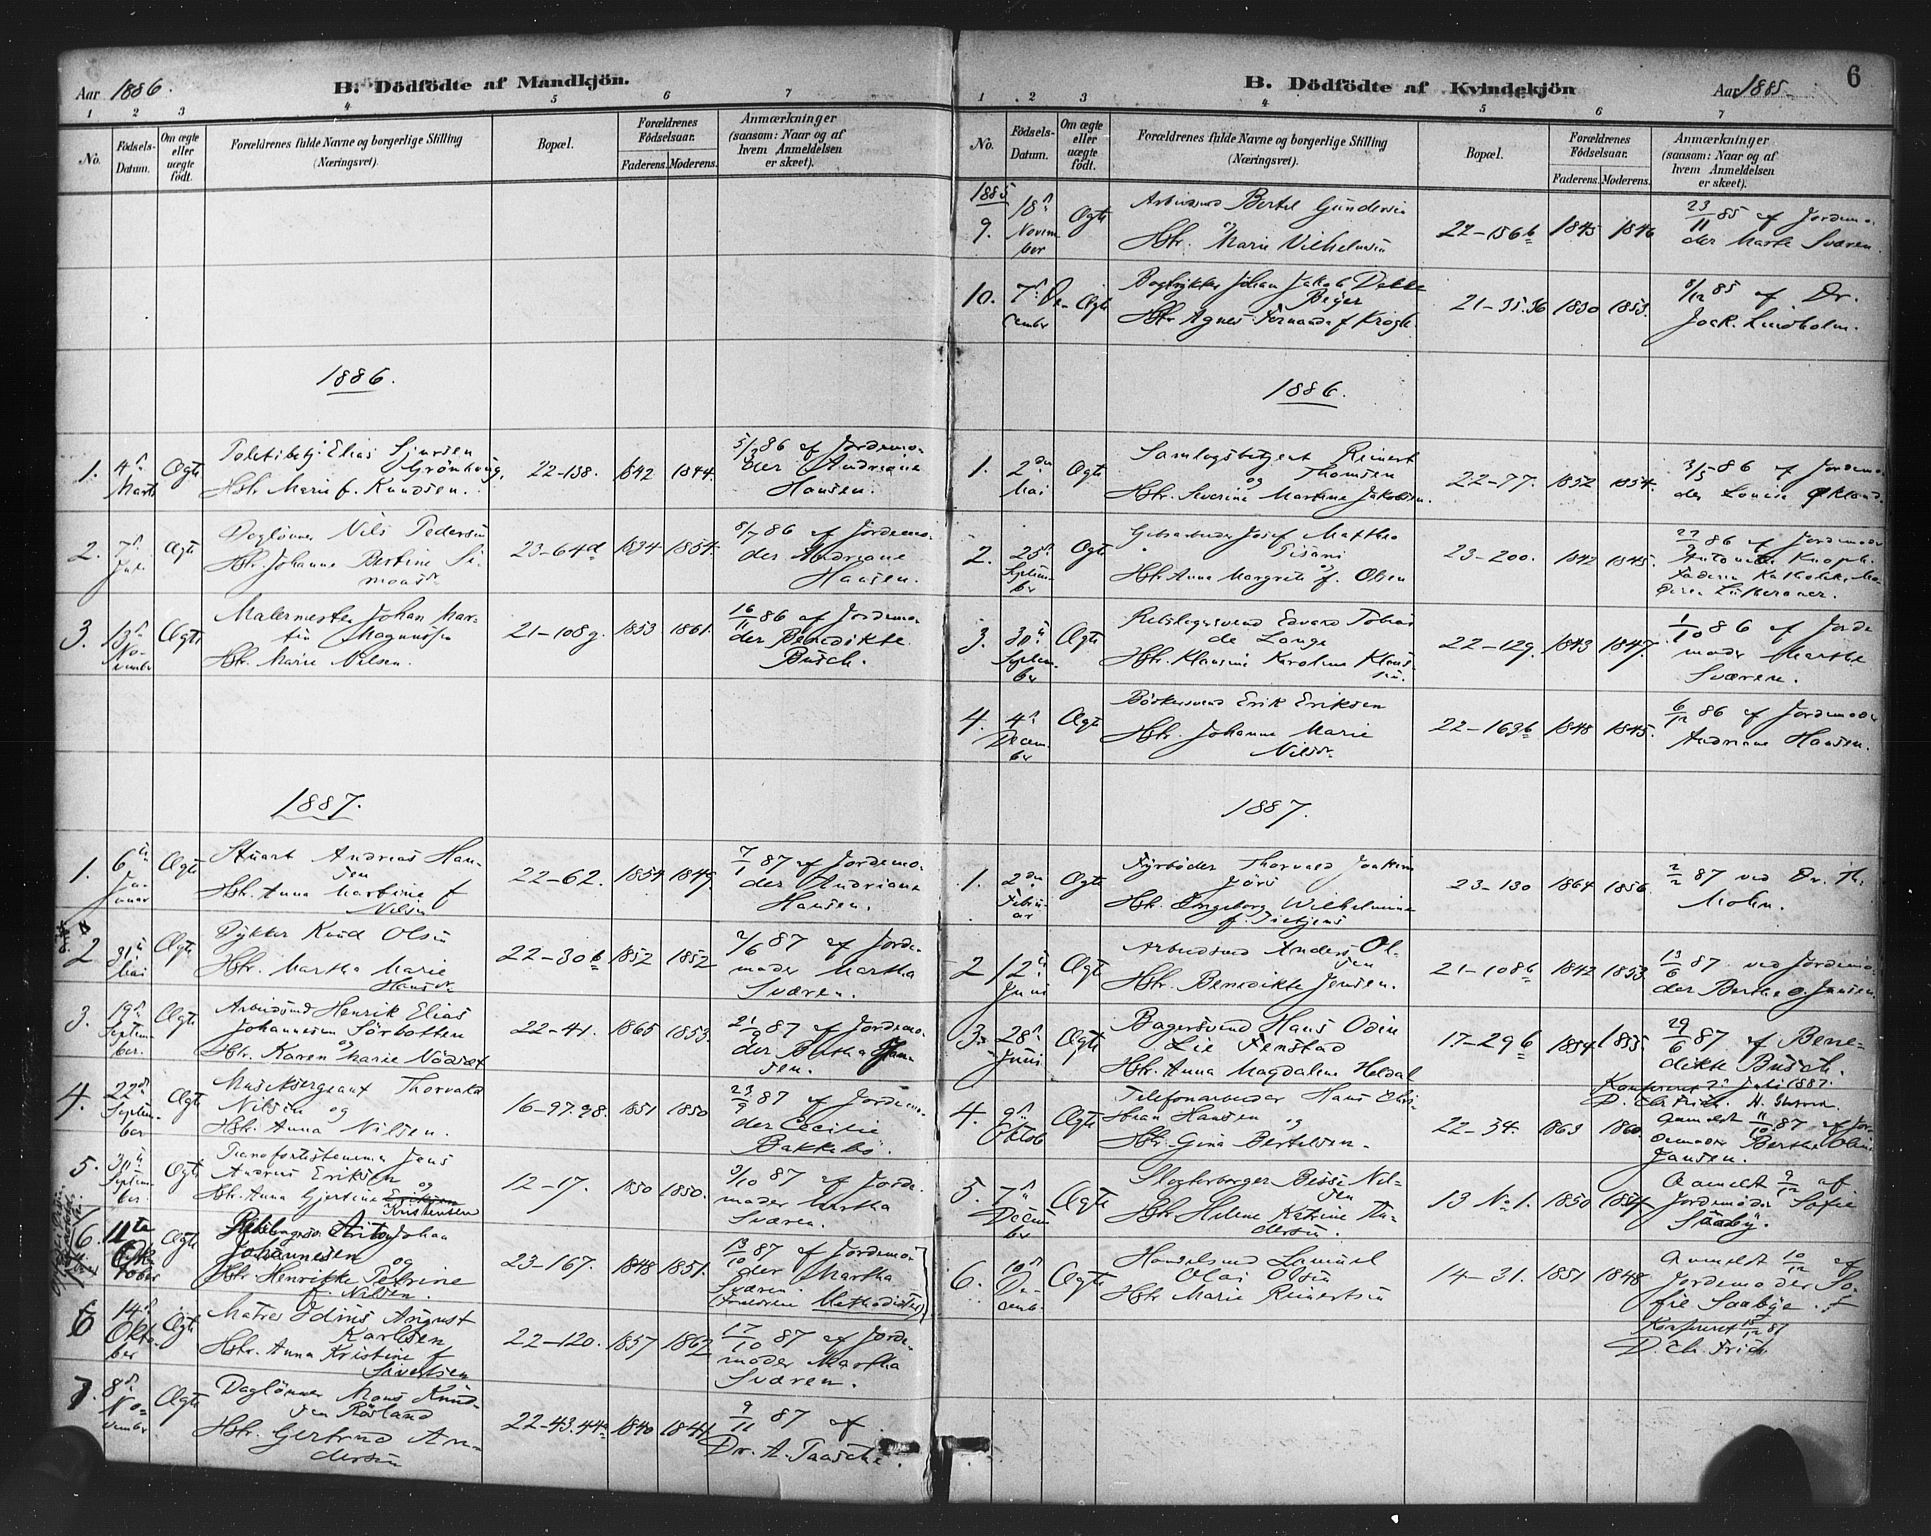 Aar 1886.
B. Dödfödte af Mandkjön.
1 2 3 4 5 6 7
No.
Födsels-
Datum.
Om ægte
eller
uægte
födt.
Forældrenes fulde Navne og borgerlige Stilling
(Næringsvei).
Bopæl.
Forældrenes
Födselsaar.
Faderens. Moderens.
Anmærkninger
(saasom: Naar og af
hvem Anmeldelsen
er skeet).
1886.
1. 4d Marts Ægte
Elias Sjursen
Hstr. Marie f. Knudsen.
22-138. 1842 1844.
5/3 86 af Jordemo-
der Andriane
Hansen.
2. 7d Juli Ægte
Daglönner Nils Pedersen
Hstr. Johanne Bertine Si-
monsdr
23-64d 1834 1854.
8/7 86 af Jordemo-
der Andriane
Hansen.
3. 13d No-
vember Ægte
Malermester Johan Mar-
tin Magnussen
Hstr. Marie Nilsen.
21-108g. 1853 1861.
16/11 86 af Jordemo-
der Benedikte
Busch.
1887.
1. 6te Ja-
nuar Ægte
Stuert Andreas Han-
sen
Hstr. Anna Martine f
Nilsen
22-62. 1854 1849.
7/1 87 af Jordemo-
der Andriane
Hansen.
2 31te Mai Ægte
Dykker Knud Olsen
Hstr. Martha Marie
Hansdr.
22-30b 1852 1852
2/6 87 af Jorde-
moder Martha
Sværen.
3. 19d Septem-
ber. Ægte
Arbeidsmd Henrik Elias
Johannesen Sörbotten
og
Hstr. Karen Marie Nödset
22-41. 1865 1853.
21/9 87 af Jordemo-
der Bertha Jan-
sen.
4. 22d Septem-
ber Ægte
Musiksergeant Thorvald
Nilsen og
Hstr. Anna Nilsen.
16-97.98. 1851 1850
23/9 87 af Jordemo-
der Cecilie
Bakkebö.
5. 30te Septem-
ber. Ægte
Pianofortestemmer Jens
Andreas Eriksen og
Hstr. Anna Gjertine Eriksen
Kristensen
12-17. 1850 1850.
3/10 87 af Jorde-
moder Martha
Sværen
6. 11te Okt-
ober Ægte
Johan
Johannesen og
Hstr. Henrikke Petrine
f. Nilsen.
23-167. 1848 1851.
13/10 87 af Jordemo-
der Martha
Sværen.
(Forældrene Methodister)
6 14d Okto-
ber Ægte
Matros Odinus August
Karlsen
Hstr. Anna Kristine f
Sivertsen
22-120. 1857 1862
17/10 87 af Jorde-
moder Martha
Sværen.
7. 8d No-
vember Ægte
Daglönner Mons Knud-
sen Rösland
Hstr. Gertrud An-
dersen
22-43.44a 1840 1844
9/11 87 af
Dr. A. Taasche.
B. Dödfödte af Kvindekjön
Aar 1885.
6
1 2 3 4 5 6 7
No.
Födsels-
Datum.
Om ægte
eller
uægte
födt.
Forældrenes fulde Navne og borgerlige Stilling
(Næringsvei).
Bopæl.
Forældrenes
Födselsaar.
Faderens. Moderens.
Anmærkninger
(saasom: Naar og af
hvem Anmeldelsen
er skeet).
1885
9. 18d Novem-
ber Ægte
Arbeidsmd Bertel Gundersen
Hstr. Marie Vilhelmsen
22-156b 1845 1846
23/11 85 af Jordemo-
der Marte Sværen.
10. 7d De-
cember Ægte
Bogtrykker Johan Jakob Dekke
Beyer
Hstr Agnes Fernanda f Krogh.
21-35.36 1830 1853.
8/12 85 af Dr.
Joch. Lindholm.
1886.
1. 2den Mai Ægte
Samlagsbetjent Reinert
Thomsen
og
Hstr. Severine Martine Jakobsen.
22-77. 1852 1854.
3/5 86 af Jordemo-
der Louise Økland.
2. 25d Septem-
ber Ægte
Gibsarbeider Josef Mattheo
Pisani
og
Hstr. Anna Margrete f. Olsen
23-200. 1842 1845.
27/9 86 af Jordemoder
Faderen Katholik, Mo-
deren Lutheraner.
3. 30te Septem-
ber Ægte
Rebslagersvend Edvard Tobias
de Lange
Hstr. Klausine Karoline Klaus-
sen.
22-129. 1843 1847.
1/10 86 af Jorde-
moder Martha
Sværen.
4. 4d Decem-
ber Ægte
Bödkersvend Erik Eriksen
Hstr. Johanne Marie
Nilsdr.
22-163b 1848 1845.
6/12 86 af Jordemoder
Andriane Hansen.
1887.
1. 2den Febru-
ar Ægte
Fyrböder Thorvald Joakim
Jörs
Hstr. Ingeborg Wilhelmine
f. Tietjens
23-130 1864 1856.
2/2 87 ved Dr. Th.
Mohn.
2 12te Juni Ægte
Arbeidsmd Anders Ol-
sen
Hstr. Benedikte Jensen.
21-108b 1842 1853.
13/6 87 ved Jordemo-
der Berthe O. Jansen.
3. 28d Juni Ægte
Bagersvend Hans Odin
Lie Fenstad
Hstr. Anna Magdalene Heldal
17-29b 1854 1855.
29/6 87 af Bene-
dikte Busch.
Konfereret 2 Juli 1887.
D. Chr Frich.
4. 9d Oktob Ægte
Telefonarbeider Hans Chris-
tian Hansen og
Hstr. Gina Bertelsen.
22-34. 1863 1860.
Anmeldt 11/10 87 af Jor-
demoder Berthe Oline
Jansen.
5. 7de Decem-
ber Ægte
Hstr. Helene Katrine An-
dersen.
13 No 1. 1850 1854
Anmeldt 9/12 af
Jordemoder Sofie
Saaby.
6. 10d De-
cemb. Ægte
Handelsmd Lamuel
Olai Olsen
Hstr Marie Reinertsen
14-31. 1851 1848
Anmeldt 10/12 af
Jordemoder So-
fie Saabye.
Konfereret 15/12 87
D. Ch. Frich